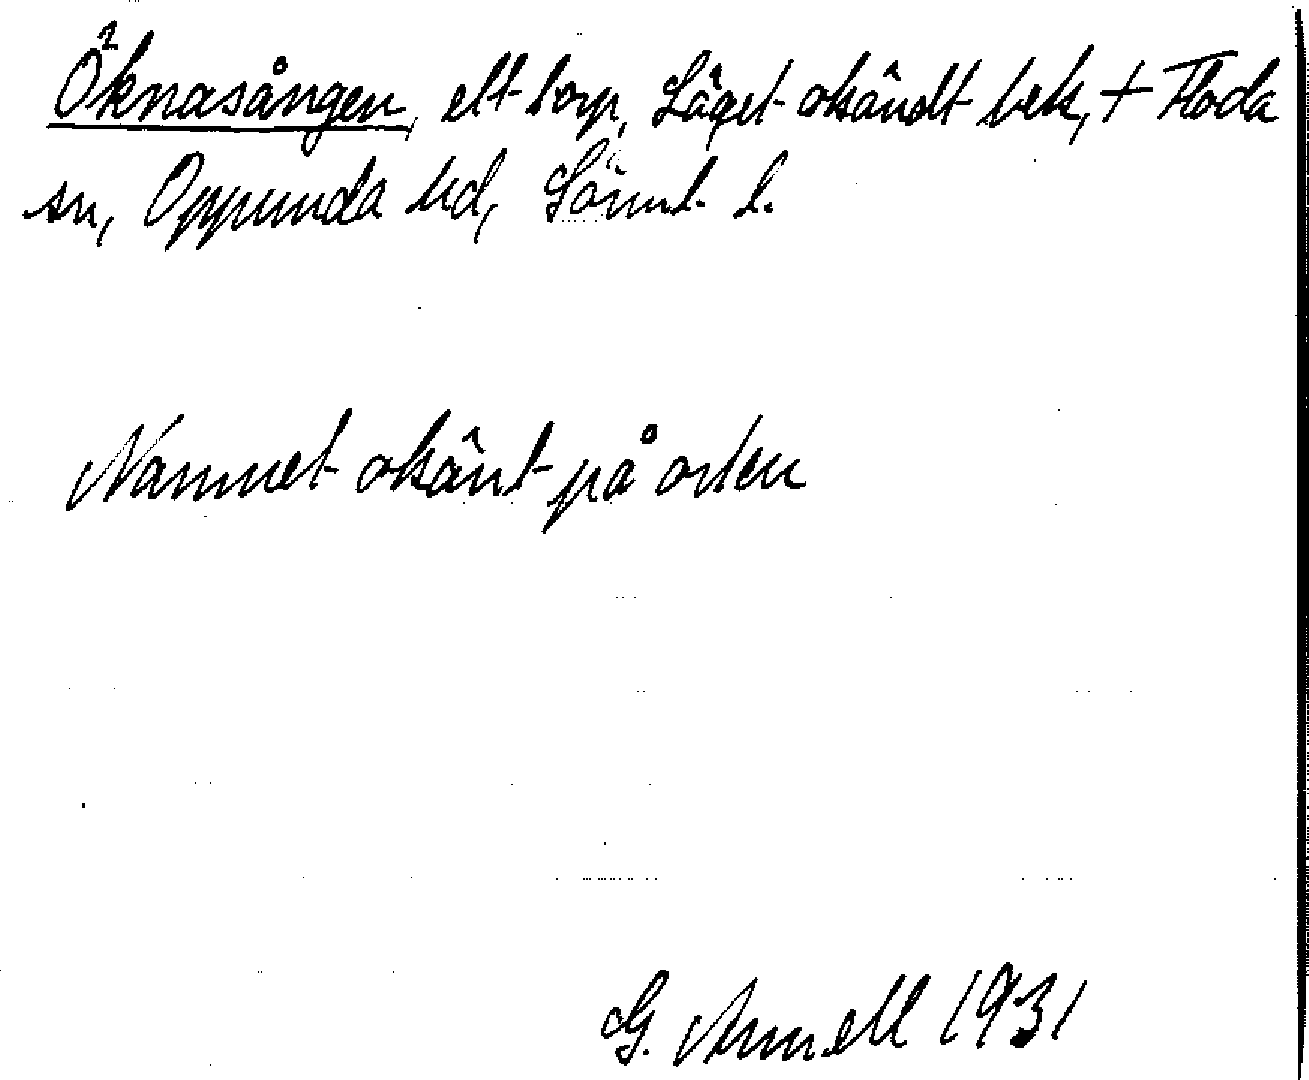 Öknasången, ett torp, Läget okändt bek, + Floda
sn, Oppunda hd, Sörml. l.
Namnet okänt på orten
G. Arnell 1931